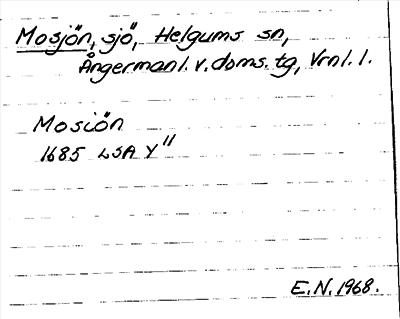 Mosjön, sjö, Helgums sn,
Ångermanl. v. doms. tg, Vrnl. l.
Mosiön
1685 LSA Y"
E.N. 1968.